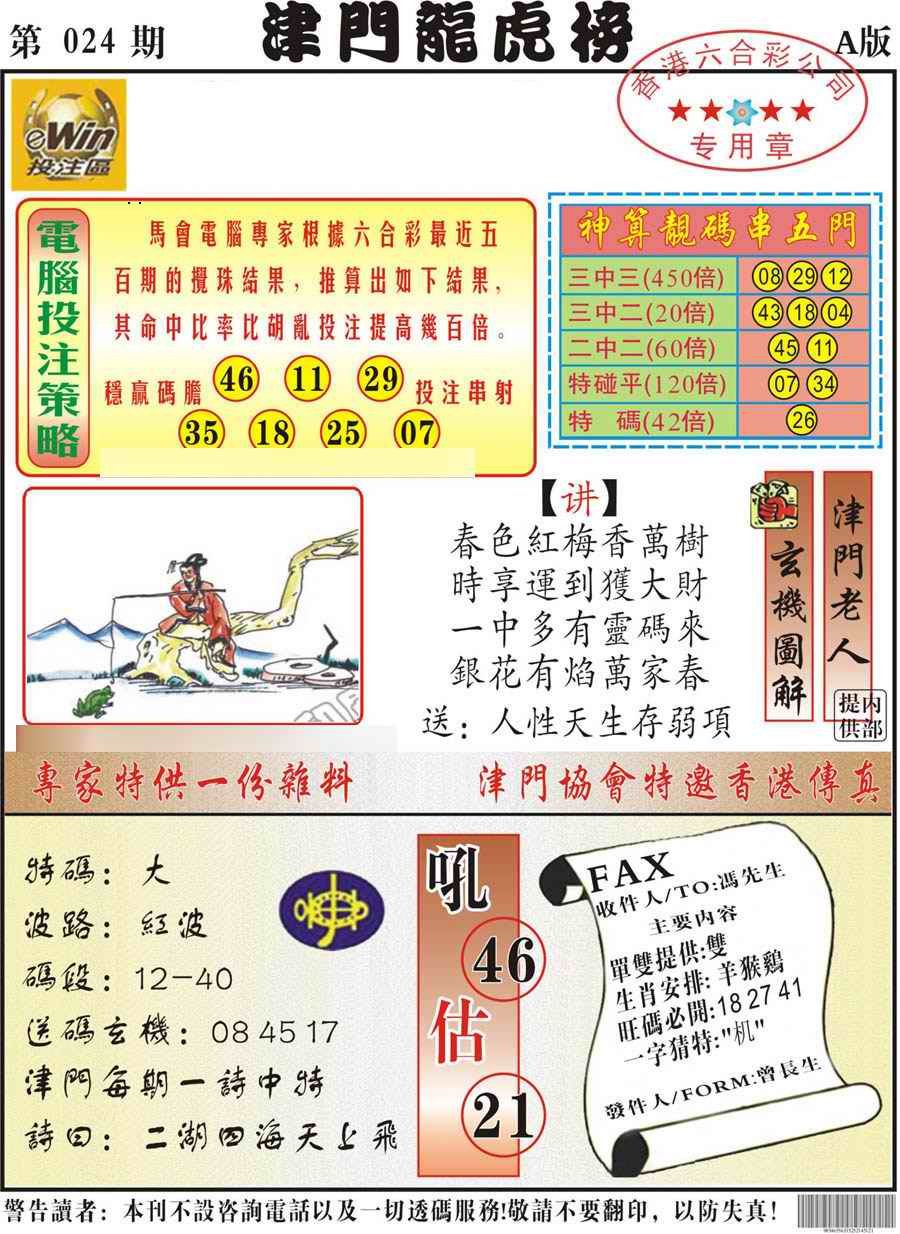 第 024 期
津門龍虎榜
A版
香港六合彩公司
专用章
eWin
投注區
電腦投注策略
馬會電腦專家根據六合彩最近五
百期的攪珠結果，推算出如下結果，
其命中比率比胡亂投注提高幾百倍。
穩贏碼膽 46 11 29 投注串射
35 18 25 07
神算靚碼串五門
三中三(450倍) 08 29 12
三中二(20倍) 43 18 04
二中二(60倍) 45 11
特碰平(120倍) 07 34
特 碼(42倍) 26
【讲】
春色紅梅香萬樹
時享運到獲大財
一中多有靈碼來
銀花有焰萬家春
送：人性天生存弱項
玄機圖解
津門老人
内部提供
專家特供一份雜料
津門協會特邀香港傳真
特碼：大
波路：紅波
碼段：12—40
送碼玄機：08 45 17
津門每期一詩中特
詩曰：二湖四海天上飛
吼
46
估
21
FAX
收件人/TO:馮先生
主要内容
單雙提供:雙
生肖安排:羊猴鷄
旺碼必開:18 27 41
一字猜特:"机"
發件人/FORM:曾長生
警告讀者：本刊不設咨詢電話以及一切透碼服務!敬請不要翻印，以防失真!